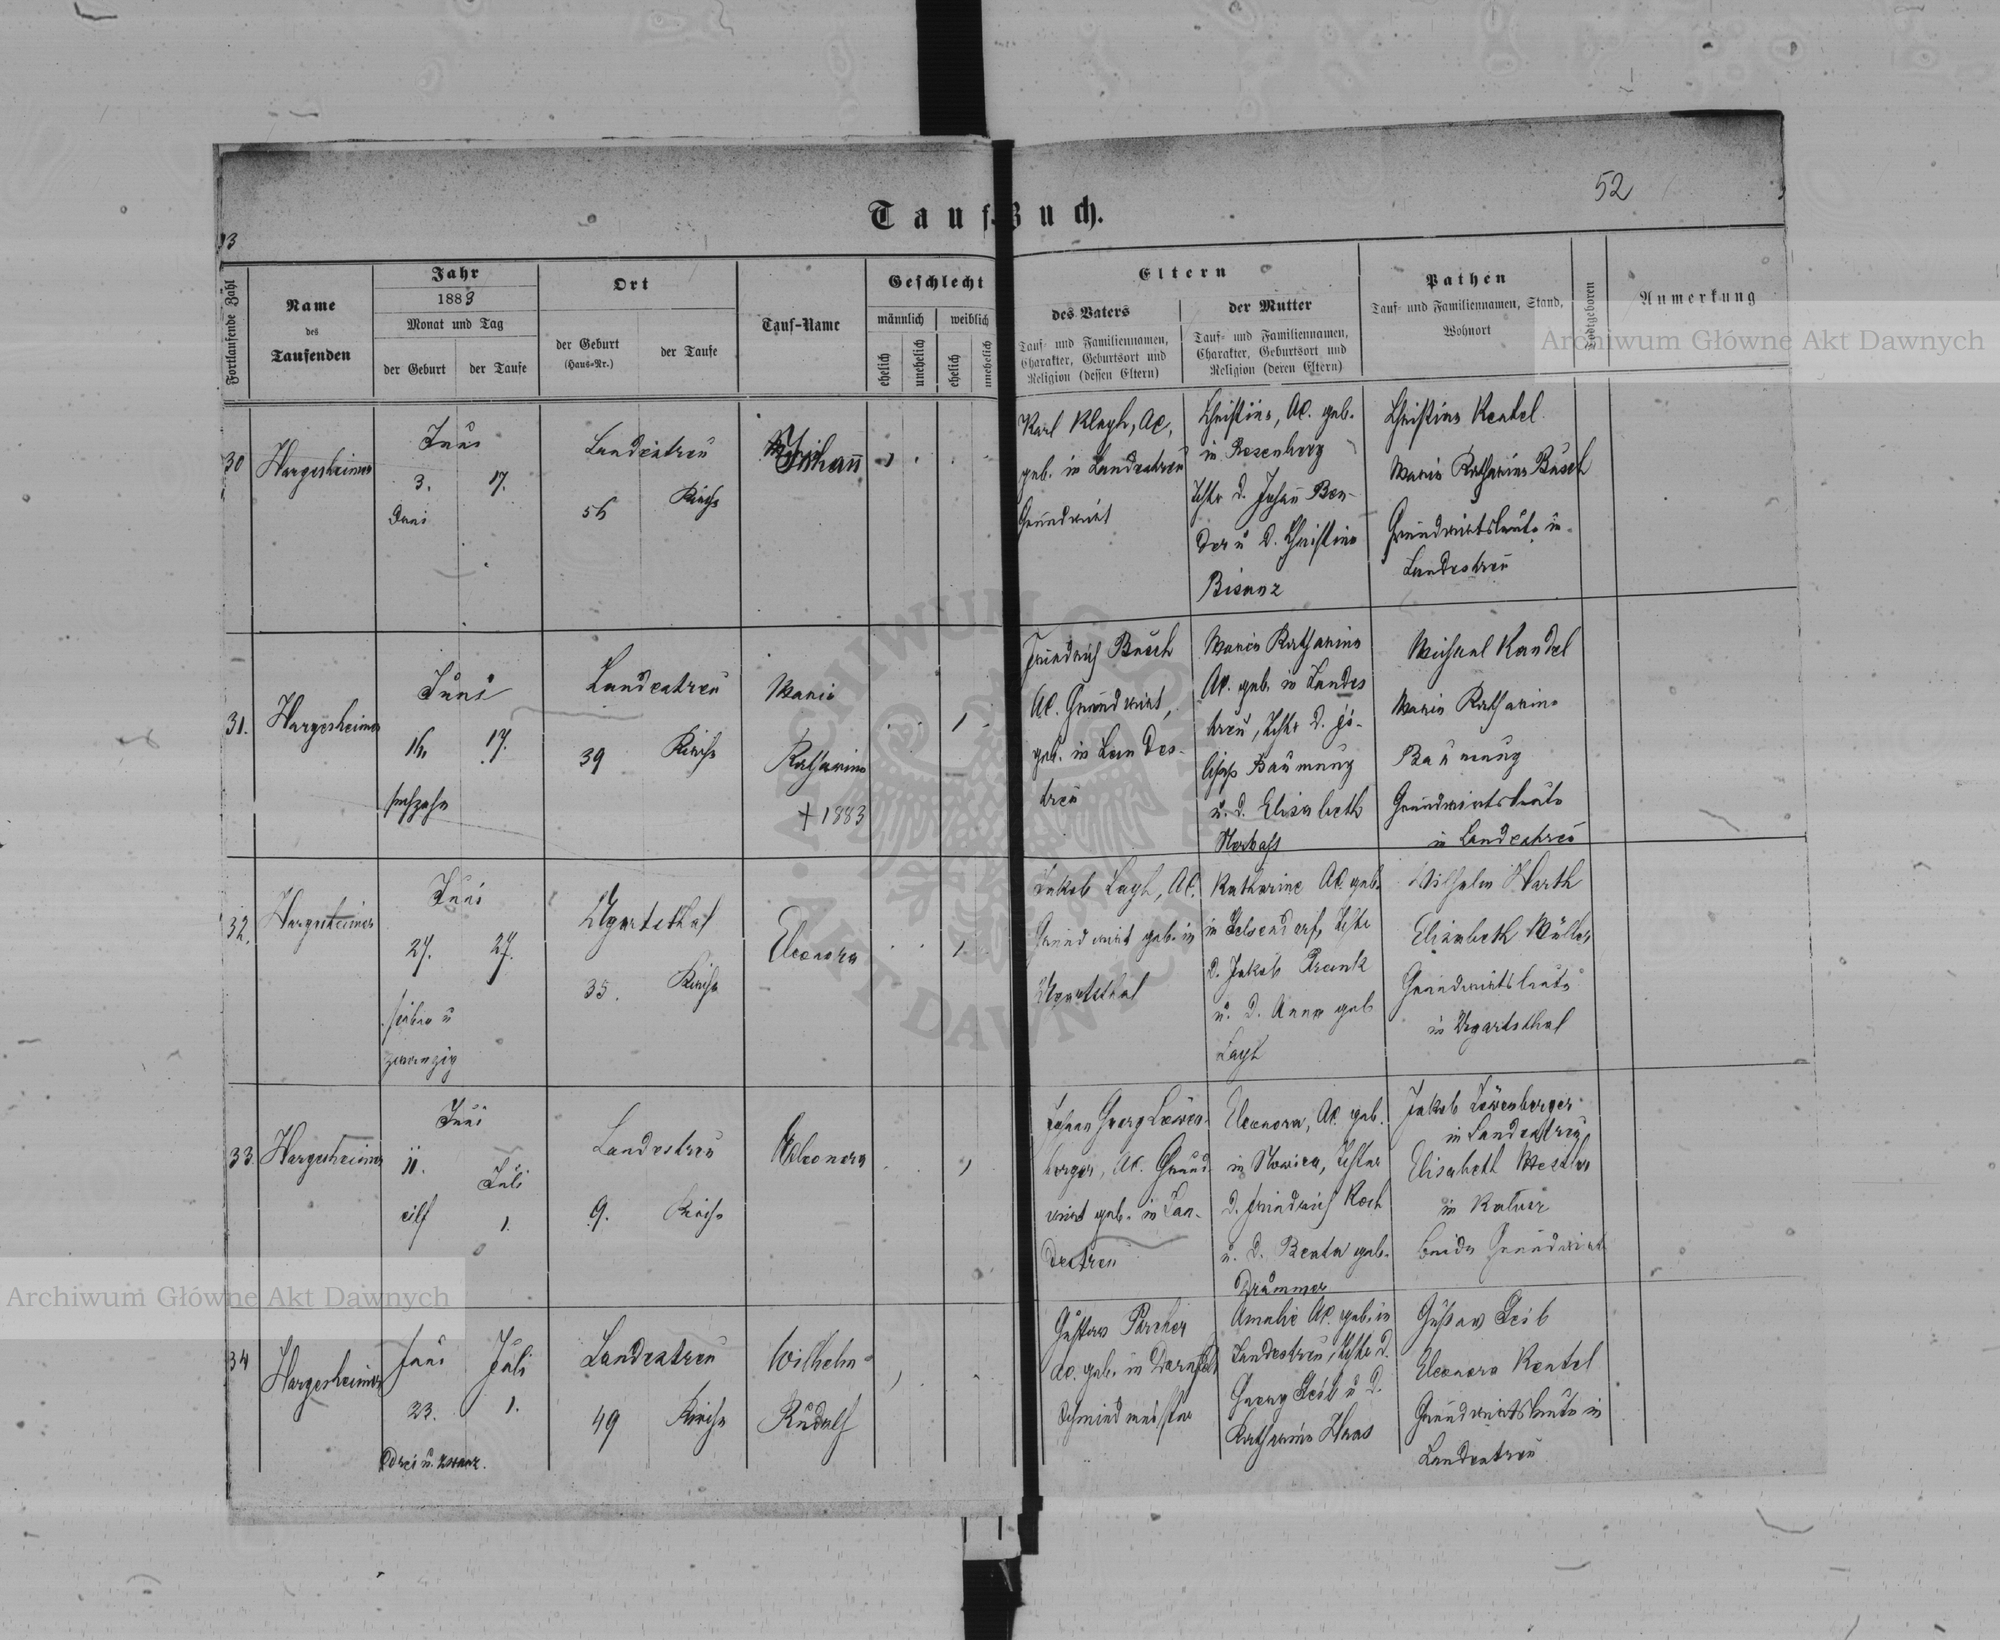 52
Tauf-Buch.
Fortlaufende Zahl
Name
des
Taufenden
Jahr
1883
Monat und Tag
der Geburt
der Taufe
Ort
der Geburt
(Haus-Nr.)
der Taufe
Tauf-Name
Geschlecht
männlich
weiblich
ehelich
unehelich
ehelich
unehelich
Eltern
des Vaters
Tauf- und Familiennamen,
Charakter, Geburtsort und
Religion (dessen Eltern)
der Mutter
Tauf- und Familiennamen,
Charakter, Geburtsort und
Religion (deren Eltern)
Pathen
Tauf- und Familiennamen, Stand,
Wohnort
Anmerkung
30
Hargesheimer
Juni
3.
17.
Drei
Landestreu
56
Kirche
Johann
Karl
AC,
geb. in Landestreu
Grundwirt
Christine, AC. geb.
in Rosenberg
Tcht. d. Johann Ben-
der u d. Christine
Bisanz
Christine Rentel
Maria Katharina Busch
Grundwirtsleute in
Landestreu
31.
Hargesheimer
Juni
16
17.
sechzehn
Landestreu
39
Kirche
Maria
Katharina
+ 1883
Friedrich Busch
AC. Grundwirt,
geb. in Landes-
treu
Maria Katharina
AC. geb. in Landes
treu, Tcht. d.
Baumung
u. d. Elisabeth
Michael Kandel
Maria Katharina
Baumung
Grundwirtsleute
in Landestreu
32.
Hargesheimer
Juni
27.
27.
sieben u
zwanzig
Ugartsthal
35.
Kirche
Eleonora
Jakob
AC.
Grundwirt geb. in
Ugartsthal
Katharine AC. geb.
in Gelsendorf, Tcht.
d. Jakob Frank
u. d. Anna geb
Wilhelm Harth
Elisabeth Müller
Grundwirtsleute
in Ugartsthal
33.
Hargesheimer
Juni
11.
Juli
eilf
1.
Landestreu
9.
Kirche
Eleonora
Johann Georg Löwen-
berger, AC. Grund
wirt geb. in Lan-
destreu
Eleonora, AC. geb.
in Nowica, Tochter
d. Friedrich Koch
u. d. Beata geb.
Drummer
Jakob Löwenberger
in Landestreu
Elisabeth
in Kalusz
beide Grundwirt
34
Hargesheimer
Juni
Juli
23.
1.
Drei u. zwanz.
Landestreu
49
Kirche
Wilhelm
Rudolf
Gustav
AC. geb. in
Schmiedmeister
Amalie AC. geb. in
Landestreu, Tcht. d.
Georg Leib u d.
Katharina Haas
Gustav Leib
Eleonora Rentel
Grundwirtsleute in
Landestreu
Archiwum Główne Akt Dawnych
Archiwum Główne Akt Dawnych